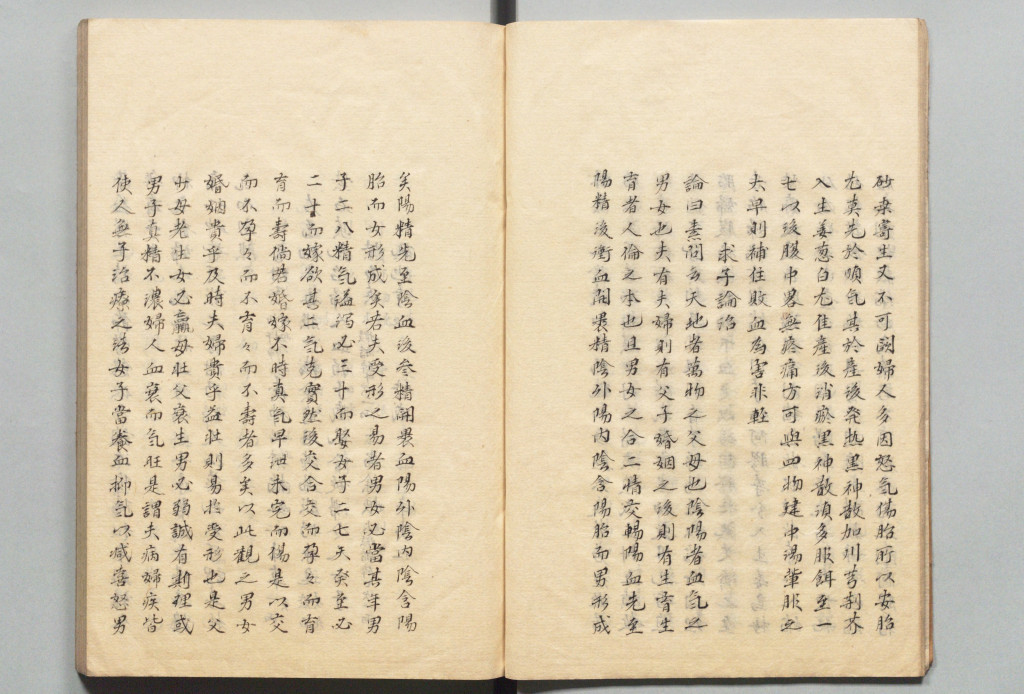 砂桑寄生又不可闕婦人多因怒气傷胎所以安胎
尤真先於順气其於産後発熱黒神散加川芎荊芥
入生姜葱白尤佳産後消瘀黒神散須多服餌至一
七以後腹中畧無疼痛方可與四物建中湯輩服之
太早則補住敗血為害非軽
求子論治
論曰素問云天地者萬物之父母也陰陽者血气之
男女也夫有夫婦則有父子婚姻之後則有生育生
育者人倫之本也且男女之合二情交暢陽血先至
陽精後衝血開裹精陰外陽内陰含陽胎而男形成
矣陽精先至陰血後参精開裹血陽外陰内陰含陽
胎而女形成矣若夫受形之易者男女必當其年男
子二八精气溢瀉必三十而娶女子二七天癸至必
二十而嫁欲其二气充實然後交合交而孕々而育
育而壽倘若婚嫁不時真气早泄未完而傷是以交
而不孕々而不育々而不壽者多矣以此觀之男女
婚姻貴乎及時夫婦貴乎益壮則易於受形也是父
少母老生女必羸母壮父衰生男必弱誠有斯理或
男子真精不濃婦人血衰而气旺是謂夫病婦疾皆
使人無子治療之法女子當養血抑气以減喜怒男